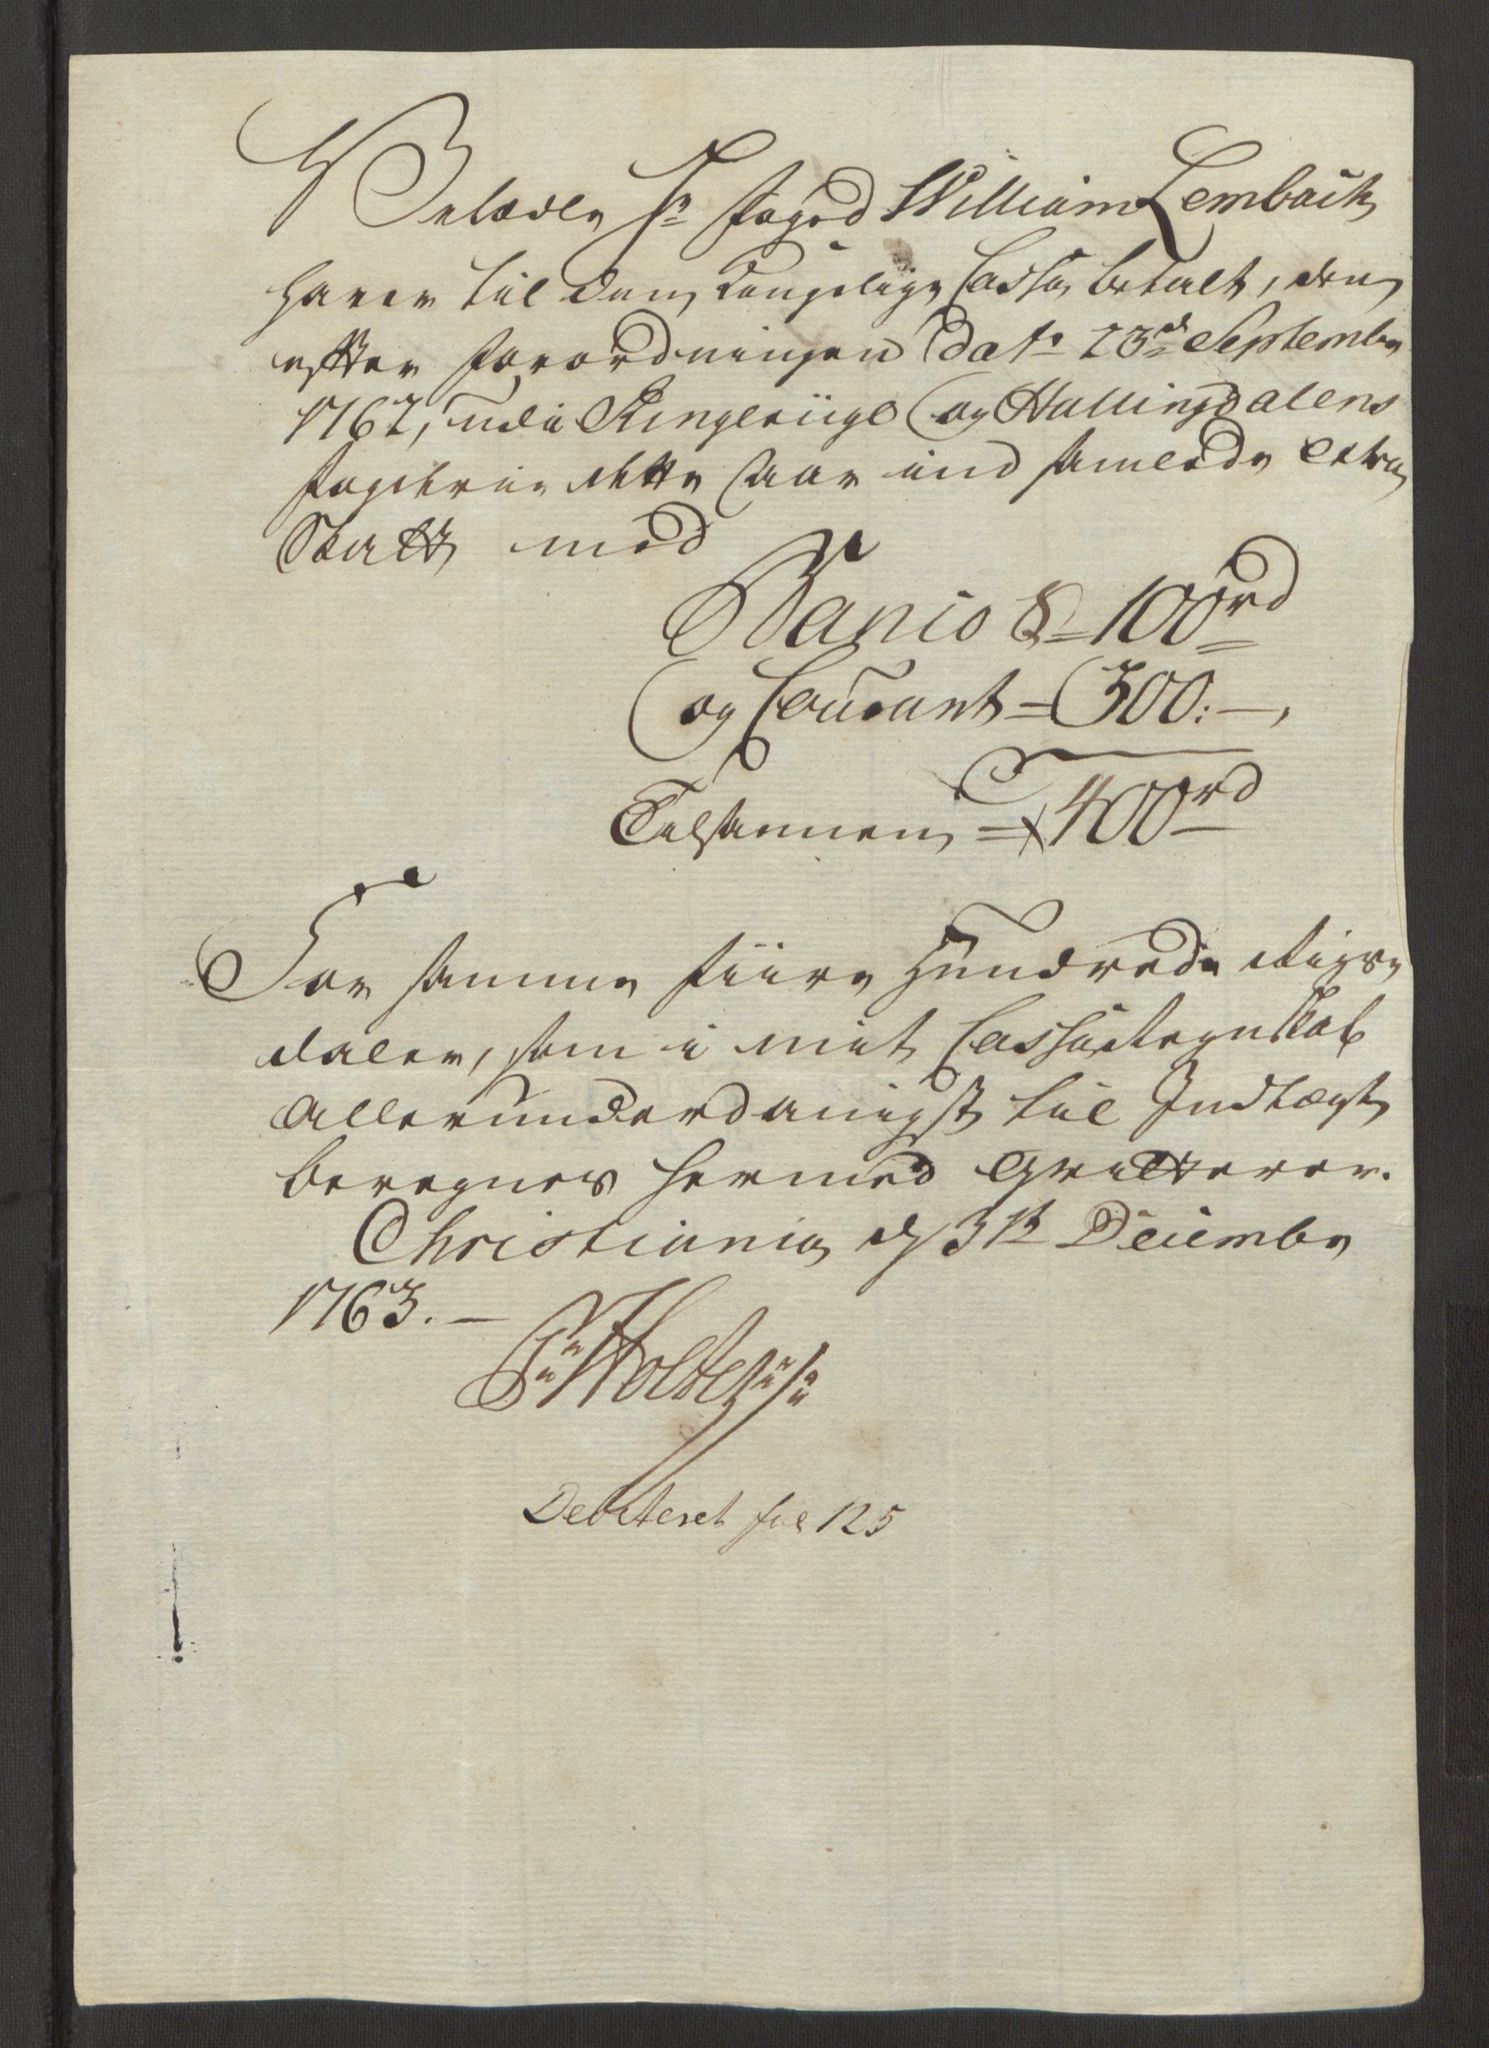 Velædle Hr Foged William Lembach
haver til den Kongelige Cassa betalt, den
efter Forordningen dato 23d Septembr
1762, udi Ringeriige og Hallingdalens
Fogderie dette Aar ind samlede Extra
Skatt med
Banco S = 100rd
og Courant = 300:—,
Tilsammen = 400rd
For samme fiire Hundrede Rigs-
daler, som i mit Cassa Regnskab
allerunderdanigst til Indtægt
beregnes hermed Qvitterer.
Christiania d 31te Decembr
1763.—
Holter
Debiteret fol 125